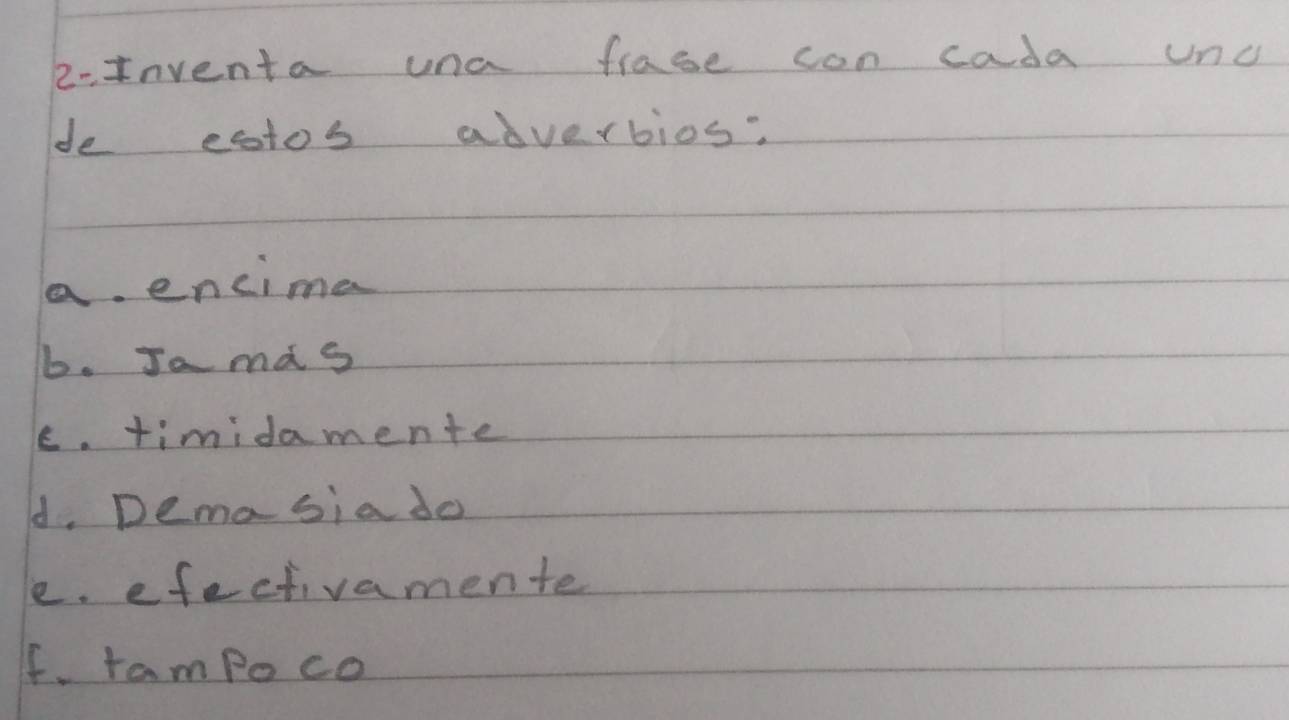 2-. Inventa una frase con cada uno
de estos adverbios:
a. encima
b. Jamás
c. timidamente
d. Demasiado
e. efectivamente
f. tampoco